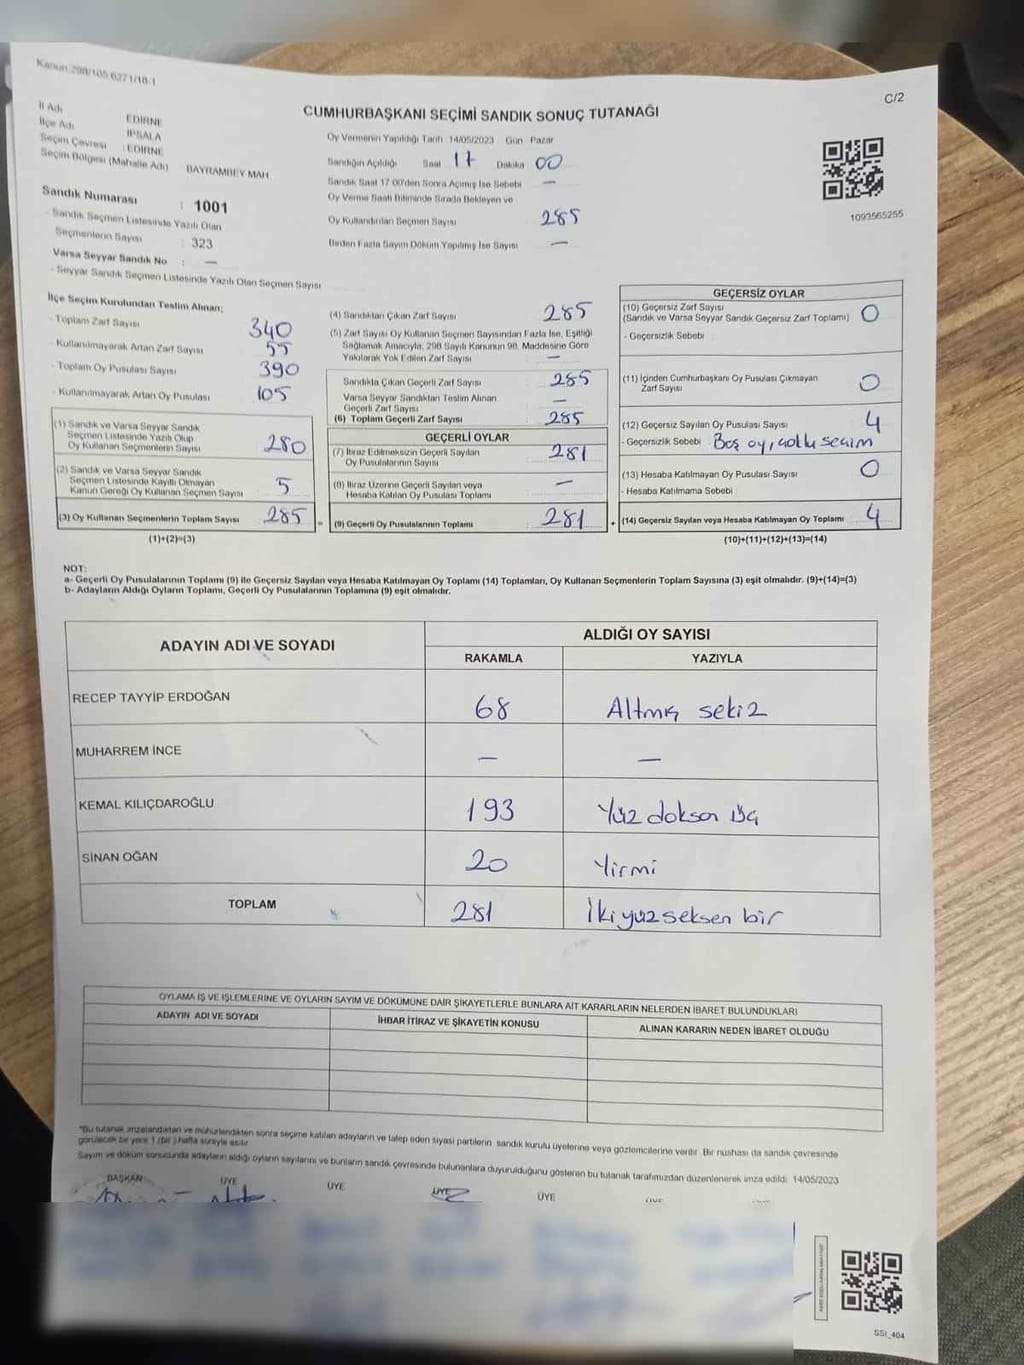 Kanun 298/105,6271/18-1
C/2
CUMHURBAŞKANI SEÇİMİ SANDIK SONUÇ TUTANAĞI
İl Adı : EDİRNE
İlçe Adı : İPSALA
Seçim Çevresi : EDİRNE
Seçim Bölgesi (Mahalle Adı) BAYRAMBEY MAH
Sandık Numarası : 1001
- Sandık Seçmen Listesinde Yazılı Olan
Seçmenlerin Sayısı : 323
Varsa Seyyar Sandık No : —
- Seyyar Sandık Seçmen Listesinde Yazılı Olan Seçmen Sayısı
Oy Vermenin Yapıldığı Tarih 14/05/2023 Gün Pazar
Sandığın Açıldığı Saat 17 Dakika 00
Sandık Saat 17.00'den Sonra Açılmış İse Sebebi —
Oy Verme Saati Bitiminde Sırada Bekleyen ve
Oy Kullandırılan Seçmen Sayısı 285
Birden Fazla Sayım Döküm Yapılmış İse Sayısı —
1093565255
İlçe Seçim Kurulundan Teslim Alınan;
- Toplam Zarf Sayısı 340
- Kullanılmayarak Artan Zarf Sayısı 55
- Toplam Oy Pusulası Sayısı 390
- Kullanılmayarak Artan Oy Pusulası 105
(1) Sandık ve Varsa Seyyar Sandık
Seçmen Listesinde Yazılı Olup
Oy Kullanan Seçmenlerin Sayısı 280
(2) Sandık ve Varsa Seyyar Sandık
Seçmen Listesinde Kayıtlı Olmayan
Kanun Gereği Oy Kullanan Seçmen Sayısı 5
(3) Oy Kullanan Seçmenlerin Toplam Sayısı 285
(1)+(2)=(3)
(4) Sandıktan Çıkan Zarf Sayısı 285
(5) Zarf Sayısı Oy Kullanan Seçmen Sayısından Fazla İse, Eşitliği
Sağlamak Amacıyla, 298 Sayılı Kanunun 98. Maddesine Göre
Yakılarak Yok Edilen Zarf Sayısı —
Sandıkta Çıkan Geçerli Zarf Sayısı 285
Varsa Seyyar Sandıktan Teslim Alınan
Geçerli Zarf Sayısı —
(6) Toplam Geçerli Zarf Sayısı 285
GEÇERLİ OYLAR
(7) İtiraz Edilmeksizin Geçerli Sayılan
Oy Pusulalarının Sayısı 281
(8) İtiraz Üzerine Geçerli Sayılan veya
Hesaba Katılan Oy Pusulası Toplamı —
(9) Geçerli Oy Pusulalarının Toplamı 281
=
+
GEÇERSİZ OYLAR
(10) Geçersiz Zarf Sayısı
(Sandık ve Varsa Seyyar Sandık Geçersiz Zarf Toplamı) 0
- Geçersizlik Sebebi
(11) İçinden Cumhurbaşkanı Oy Pusulası Çıkmayan
Zarf Sayısı 0
(12) Geçersiz Sayılan Oy Pusulası Sayısı 4
- Geçersizlik Sebebi Boş oy, çoklu seçim
(13) Hesaba Katılmayan Oy Pusulası Sayısı 0
- Hesaba Katılmama Sebebi
(14) Geçersiz Sayılan veya Hesaba Katılmayan Oy Toplamı 4
(10)+(11)+(12)+(13)=(14)
NOT:
a- Geçerli Oy Pusulalarının Toplamı (9) ile Geçersiz Sayılan veya Hesaba Katılmayan Oy Toplamı (14) Toplamları, Oy Kullanan Seçmenlerin Toplam Sayısına (3) eşit olmalıdır. (9)+(14)=(3)
b- Adayların Aldığı Oyların Toplamı, Geçerli Oy Pusulalarının Toplamına (9) eşit olmalıdır.
ADAYIN ADI VE SOYADI ALDIĞI OY SAYISI
RAKAMLA YAZIYLA
RECEP TAYYİP ERDOĞAN 68 Altmış sekiz
MUHARREM İNCE — —
KEMAL KILIÇDAROĞLU 193 Yüz doksan üç
SİNAN OĞAN 20 Yirmi
TOPLAM 281 İki yüz seksen bir
OYLAMA İŞ VE İŞLEMLERİNE VE OYLARIN SAYIM VE DÖKÜMÜNE DAİR ŞİKAYETLERLE BUNLARA AİT KARARLARIN NELERDEN İBARET BULUNDUKLARI
ADAYIN ADI VE SOYADI İHBAR İTİRAZ VE ŞİKAYETİN KONUSU ALINAN KARARIN NEDEN İBARET OLDUĞU
"Bu tutanak imzalandıktan ve mühürlendikten sonra seçime katılan adayların ve talep eden siyasi partilerin sandık kurulu üyelerine veya gözlemcilerine verilir. Bir nüshası da sandık çevresinde
görülecek bir yere 1 (bir ) hafta süreyle asılır.
Sayım ve döküm sonucunda adayların aldığı oyların sayılarını ve bunların sandık çevresinde bulunanlara duyurulduğunu gösteren bu tutanak tarafımızdan düzenlenerek imza edildi. 14/05/2023
BAŞKAN ÜYE ÜYE ÜYE ÜYE
SSI_404